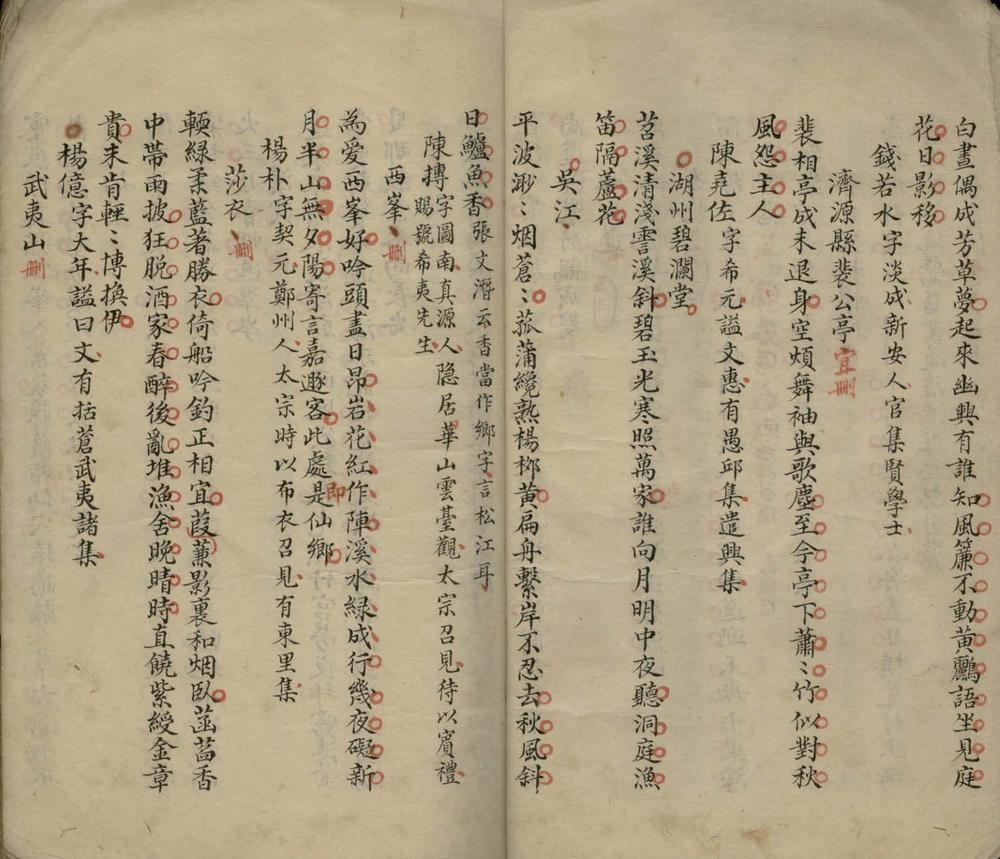 白晝偶成芳草夢起來幽興有誰知風簾不動黃鸝語坐見庭
花日影移
錢若水字淡成新安人官集賢學士
濟源縣裴公亭 宜刪
裴相亭成未退身空煩舞袖與歌塵至今亭下蕭〻竹似對秋
風怨主人
陳堯佐字希元謚文惠有愚邱集遣興集
湖州碧瀾堂
苕溪清淺霅溪斜碧玉光寒照萬家誰向月明中夜聽洞庭漁
笛隔蘆花
吳江
平波渺〻烟蒼〻菰蒲纔熟楊柳黃扁舟繫岸不忍去秋風斜
日鱸魚香張文潛云香當作鄉字言松江耳
陳摶字圖南真源人隐居華山雲臺觀太宗召見待以賓禮
賜號希夷先生
西峯 刪
為愛西峯好吟頭盡日昂岩花紅作陣溪水綠成行幾夜礙新
月半山無夕陽寄言嘉遯客此處是仙鄉
即
楊朴字契元鄭州人太宗時以布衣召見有東里集
莎衣 刪
輭綠柔藍著勝衣倚船吟釣正相宜葭蒹影裏和烟臥菡萏香
中帶雨披狂脫酒家春醉後亂堆漁舍晚晴時直饒紫綬金章
貴未肯輕〻博換伊
楊億字大年謚曰文有括蒼武夷諸集
武夷山 刪